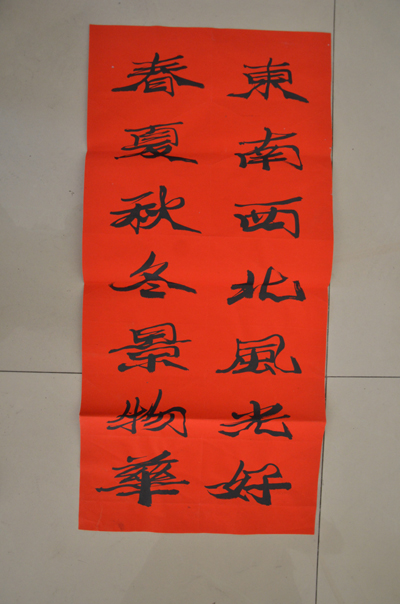 東南西北風光好
春夏秋冬景物華